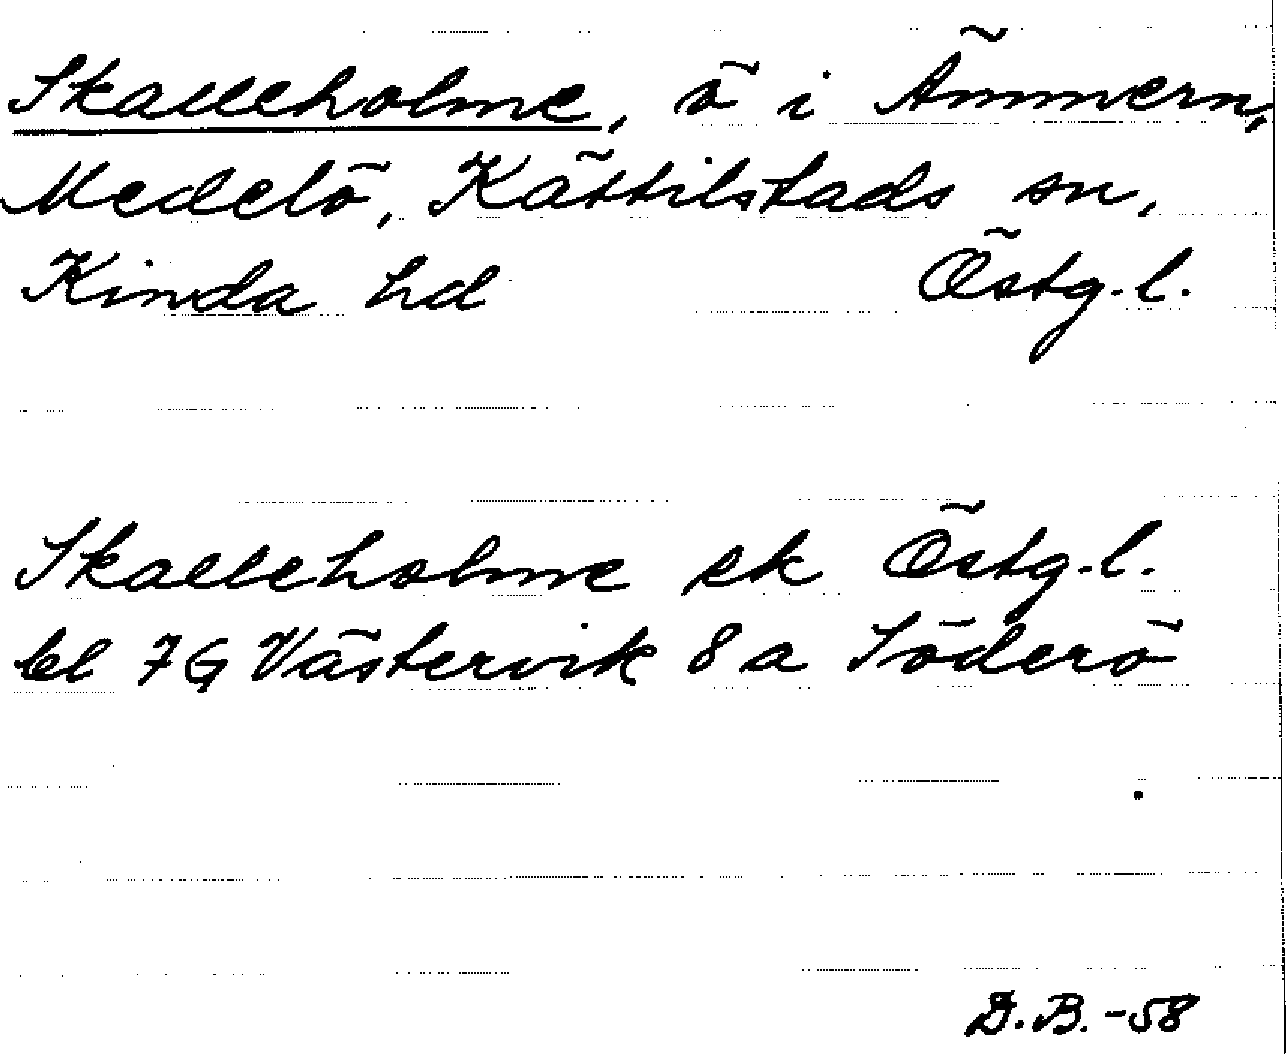 Skalleholme, ö i Ämmern,
Medelö, Kättilstads sn,
Kinda hd Östg.l.
Skalleholme ek Östg.l.
bl 7G Västervik 8a Söderö
D.B.-58